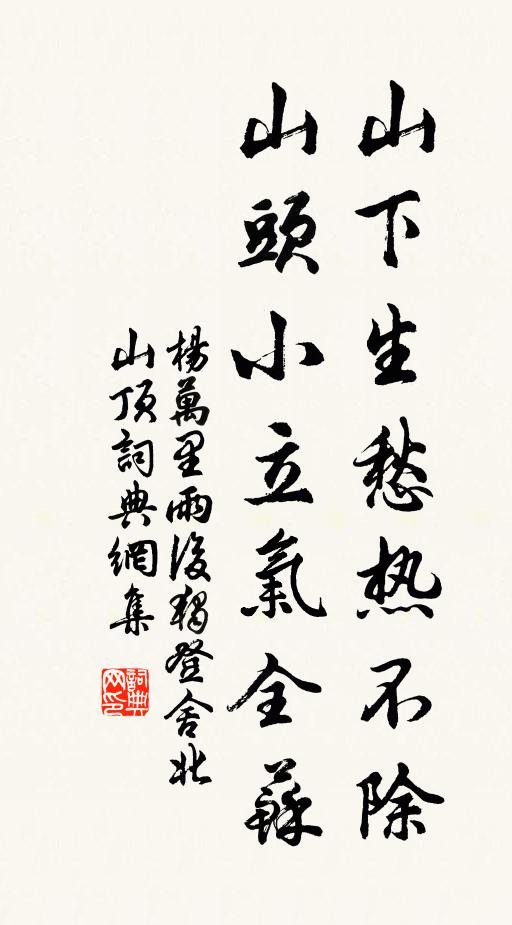 山下生愁热不除
山頭小立氣全蘇
楊萬里雨後獨登舍北
山顶詞典網集
詞典网印